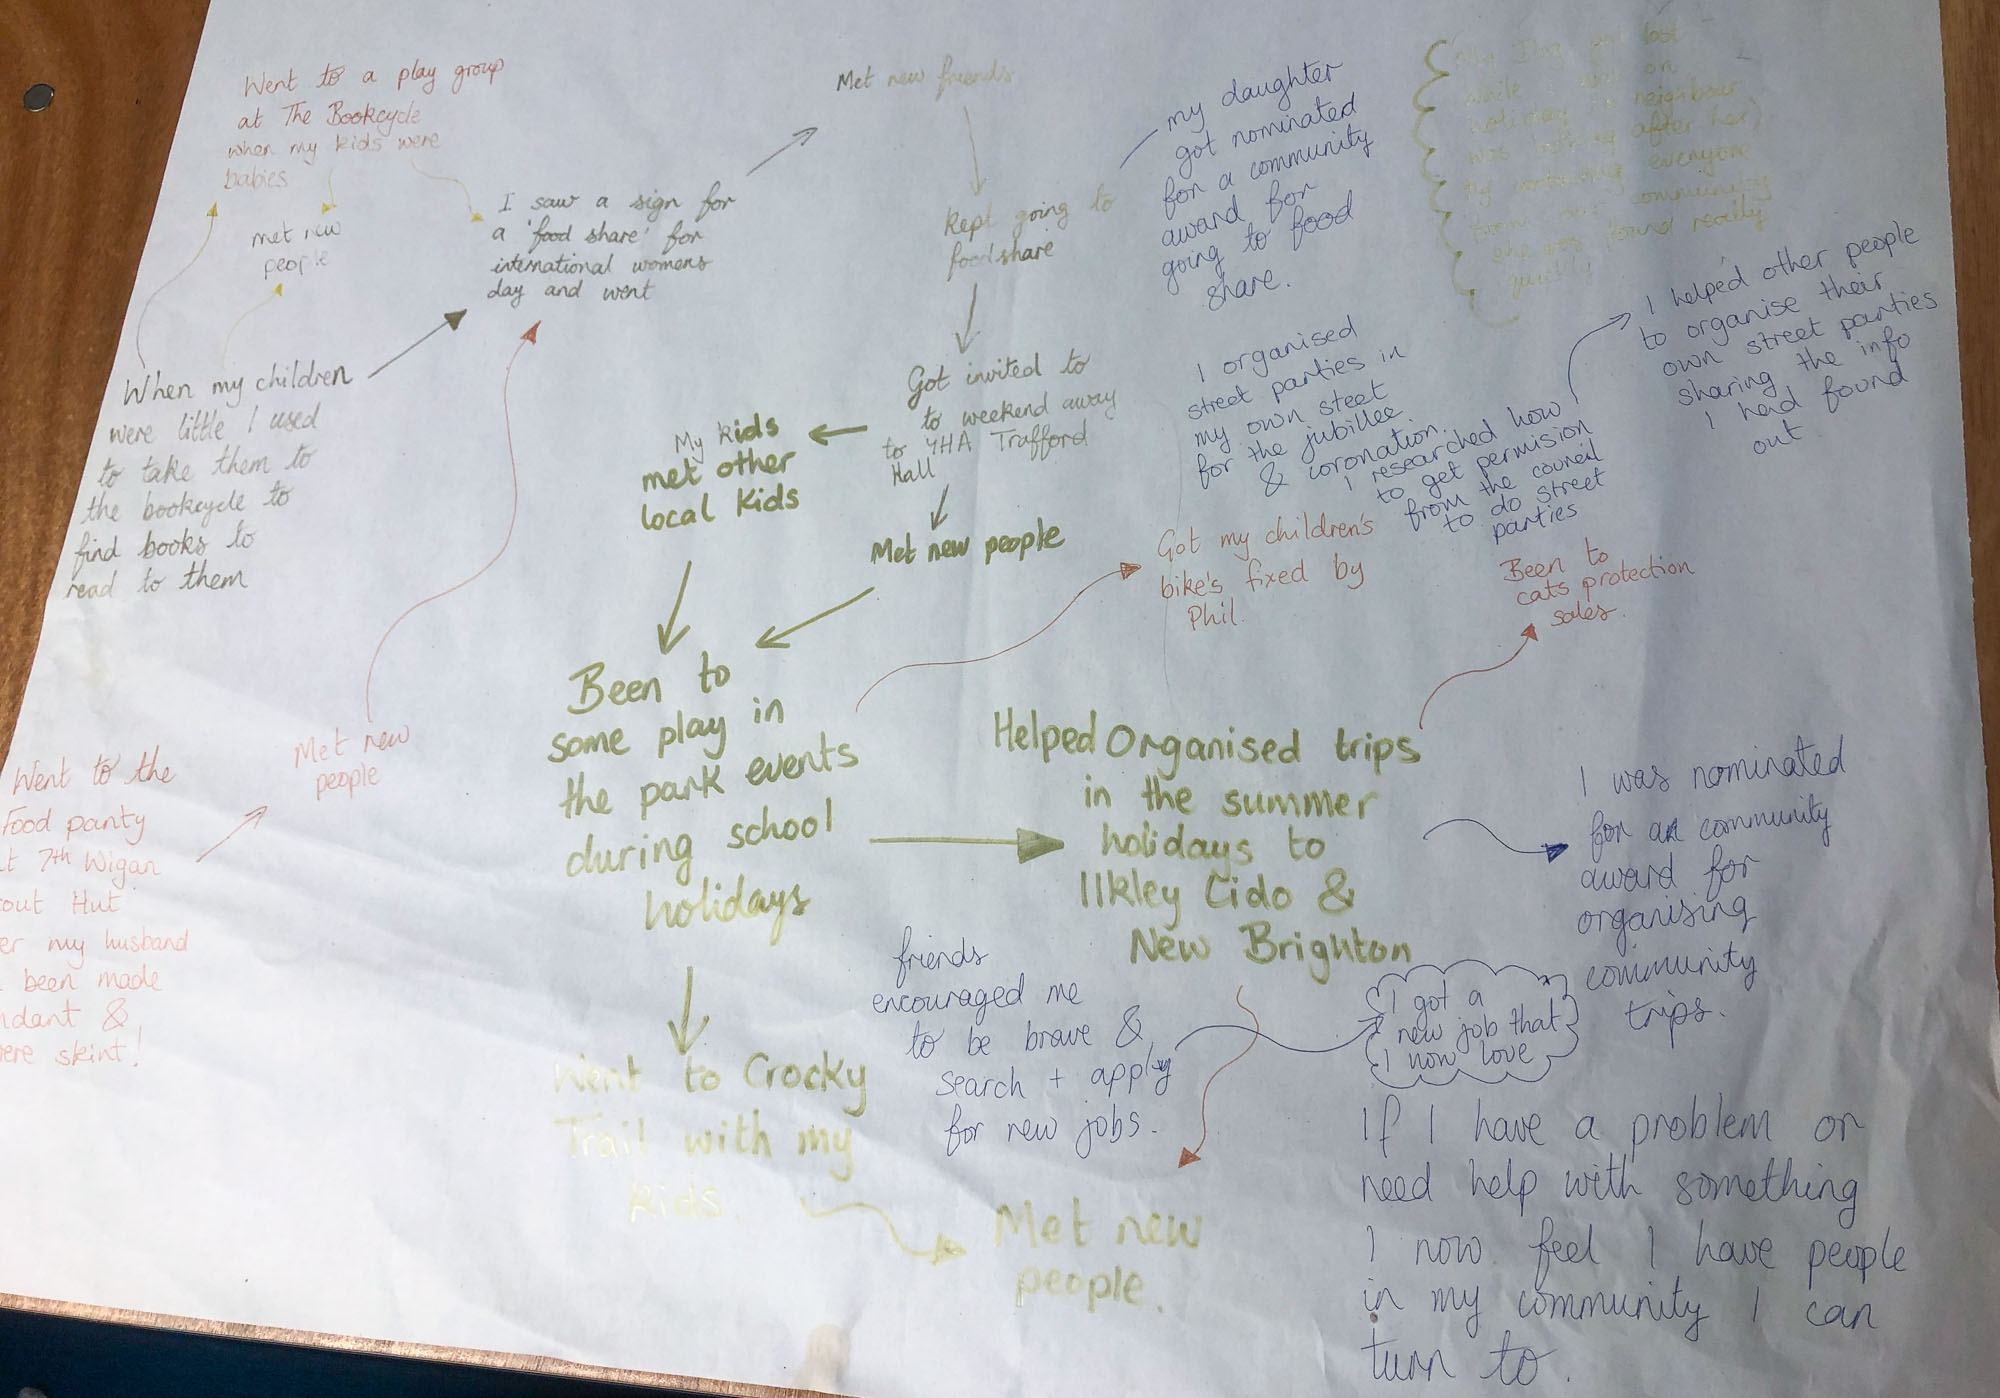 Went to a play group
at The Bookcycle
when my kids were
babies
met new
people
When my children
were little I used
to take them to
the bookcycle to
find books to
read to them
I saw a sign for
a 'food share' for
international womens
day and went
Met new friends
Kept going to
foodshare
my daughter
got nominated
for a community
award for
going to food
share.
lost
while I was on
holiday (a neighbour
was looking after her)
everyone
from our community
she was found really
quickly
Got invited to
to weekend away
to YHA Trafford
Hall
My kids
met other
local kids
Met new people
I organised
street parties in
my own steet
for the jubillee
& coronation.
I researched how
to get permision
from the council
to do street
parties
I helped other people
to organise their
own street parties
sharing the info
I had found
out
Got my children's
bike's fixed by
Phil.
Been to
cats protection
sales.
Went to the
Food panty
7th Wigan
out Hut
er my husband
been made
ndant &
ere skint!
Met new
people
Been to
some play in
the park events
during school
holidays
Helped Organised trips
in the summer
holidays to
Ilkley Lido &
New Brighton
I was nominated
for an community
award for
organising
community
trips.
friends
encouraged me
to be brave &
search + apply
for new jobs.
I got a
new job that
I now love
Went to Crocky
Trail with my
kids.
Met new
people.
If I have a problem or
need help with something
I now feel I have people
in my community I can
turn to.